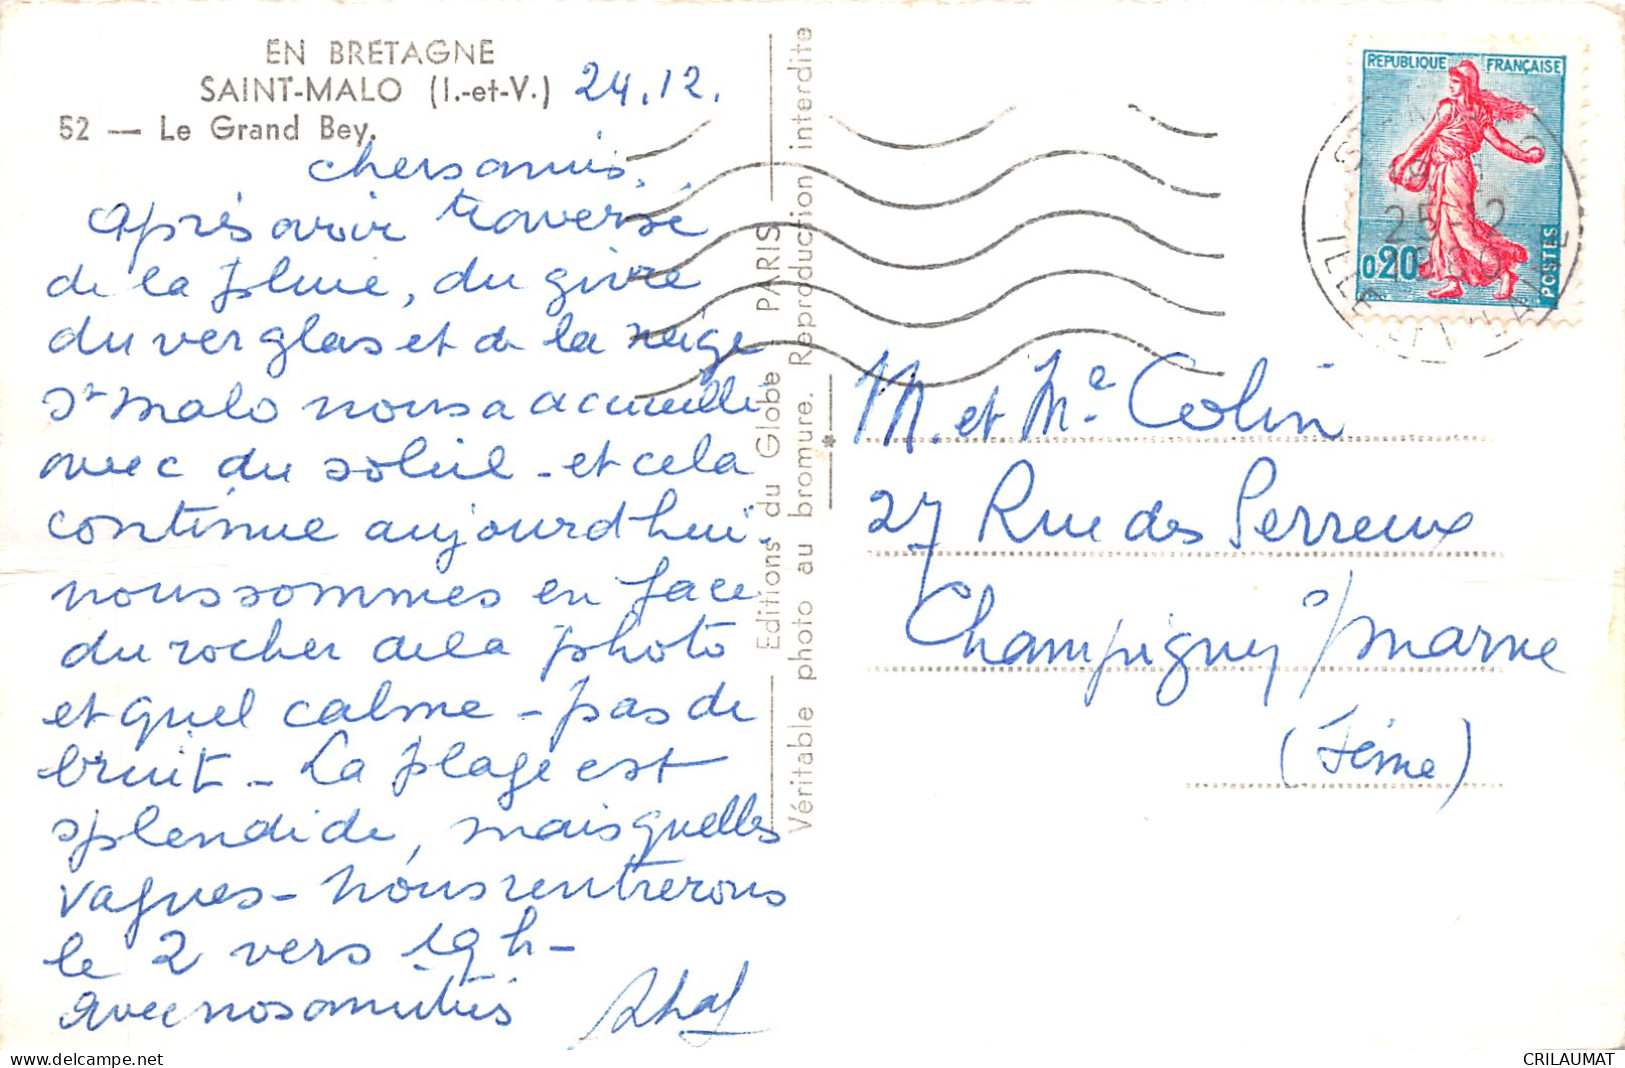 EN BRETAGNE
SAINT-MALO (I.-et-V.) 24.12.
52 — Le Grand Bey.
chers amis.
Après avoir traversé
de la pluie, du givre
du verglas et de la neige
St Malo nous a accueilli
avec du soleil - et cela
continue aujourd'hui.
nous sommes en face
du rocher de la photo
et quel calme - pas de
bruit - La plage est
splendide, mais quelles
vagues - Nous rentrerons
le 2 vers 19 h -
avec nos amitiés
Editions du Globe PARIS
Véritable photo au bromure. Reproduction interdite
REPUBLIQUE FRANÇAISE
0,20
POSTES
25-12
ILLE ET VILAINE
M. et Me Colin
27 Rue des Perreux
Champigny s/marne
(Seine)
delcampe.net
CRILAUMAT